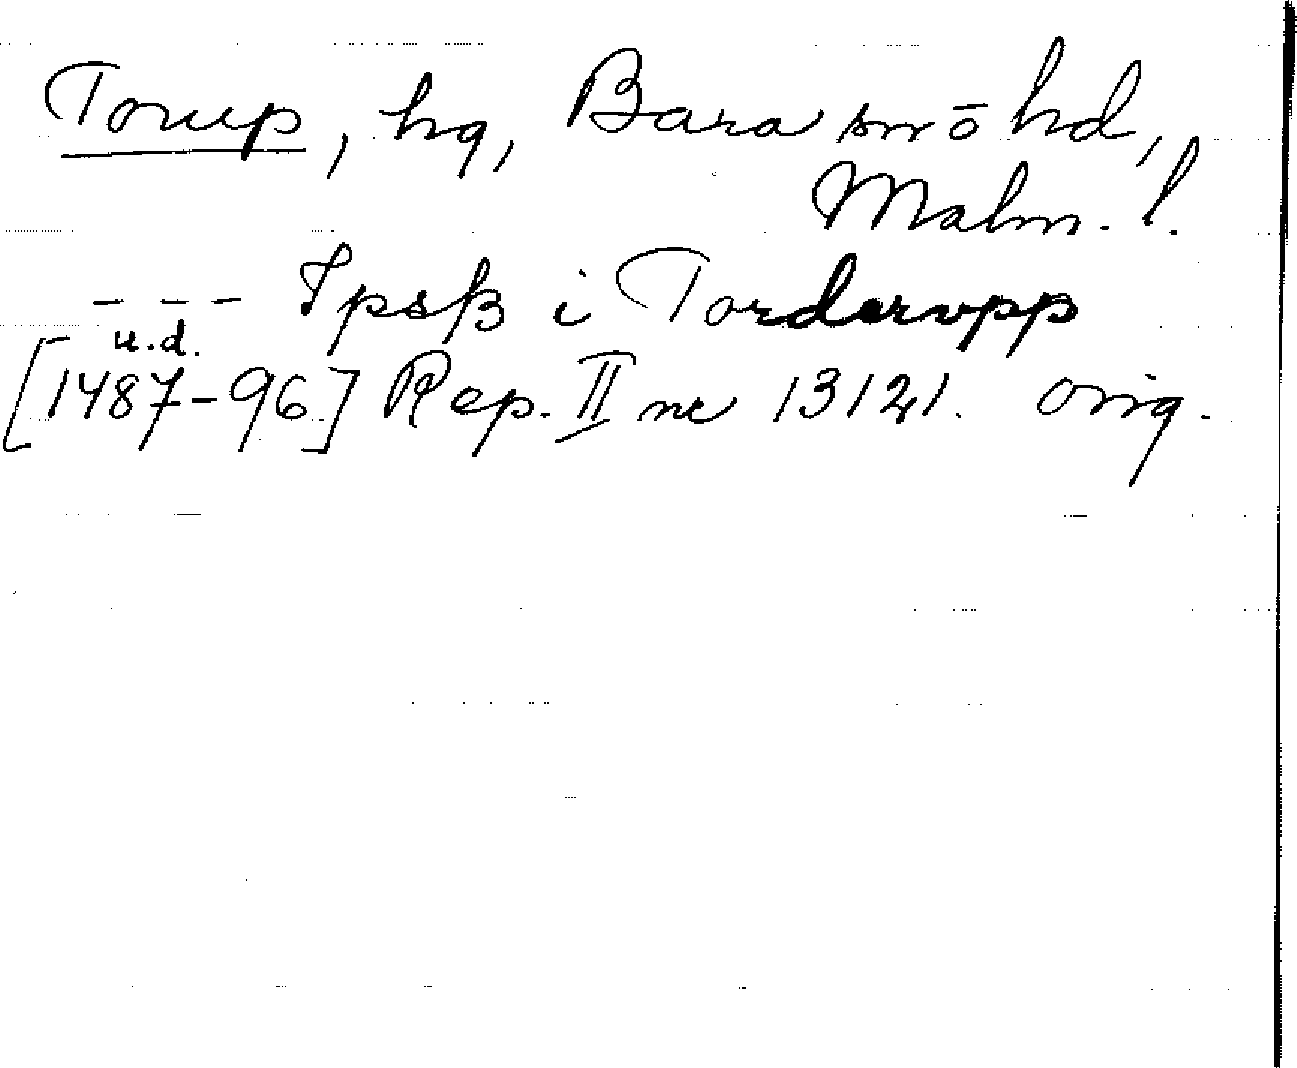 Torup, hg, Bara sn o hd,
Malm. l.
--- Ipsß i Torderupp
u.d.
[1487-96] Rep. II nr 13121. orig.